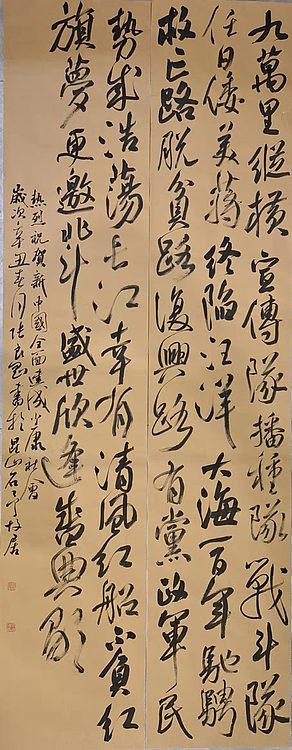 九萬里縱横宣傳隊播種隊戰斗隊
任日倭美蔣終陷汪洋大海一百年馳騁
救亡路脱貧路復興路有黨政軍民
勢成浩蕩長江幸有清風紅船不負紅
旗夢更邀北斗盛世欣逢慶典歌
热烈祝賀新中國全面建成小康社會
歲次辛丑春月张良書於昆山石亭故居